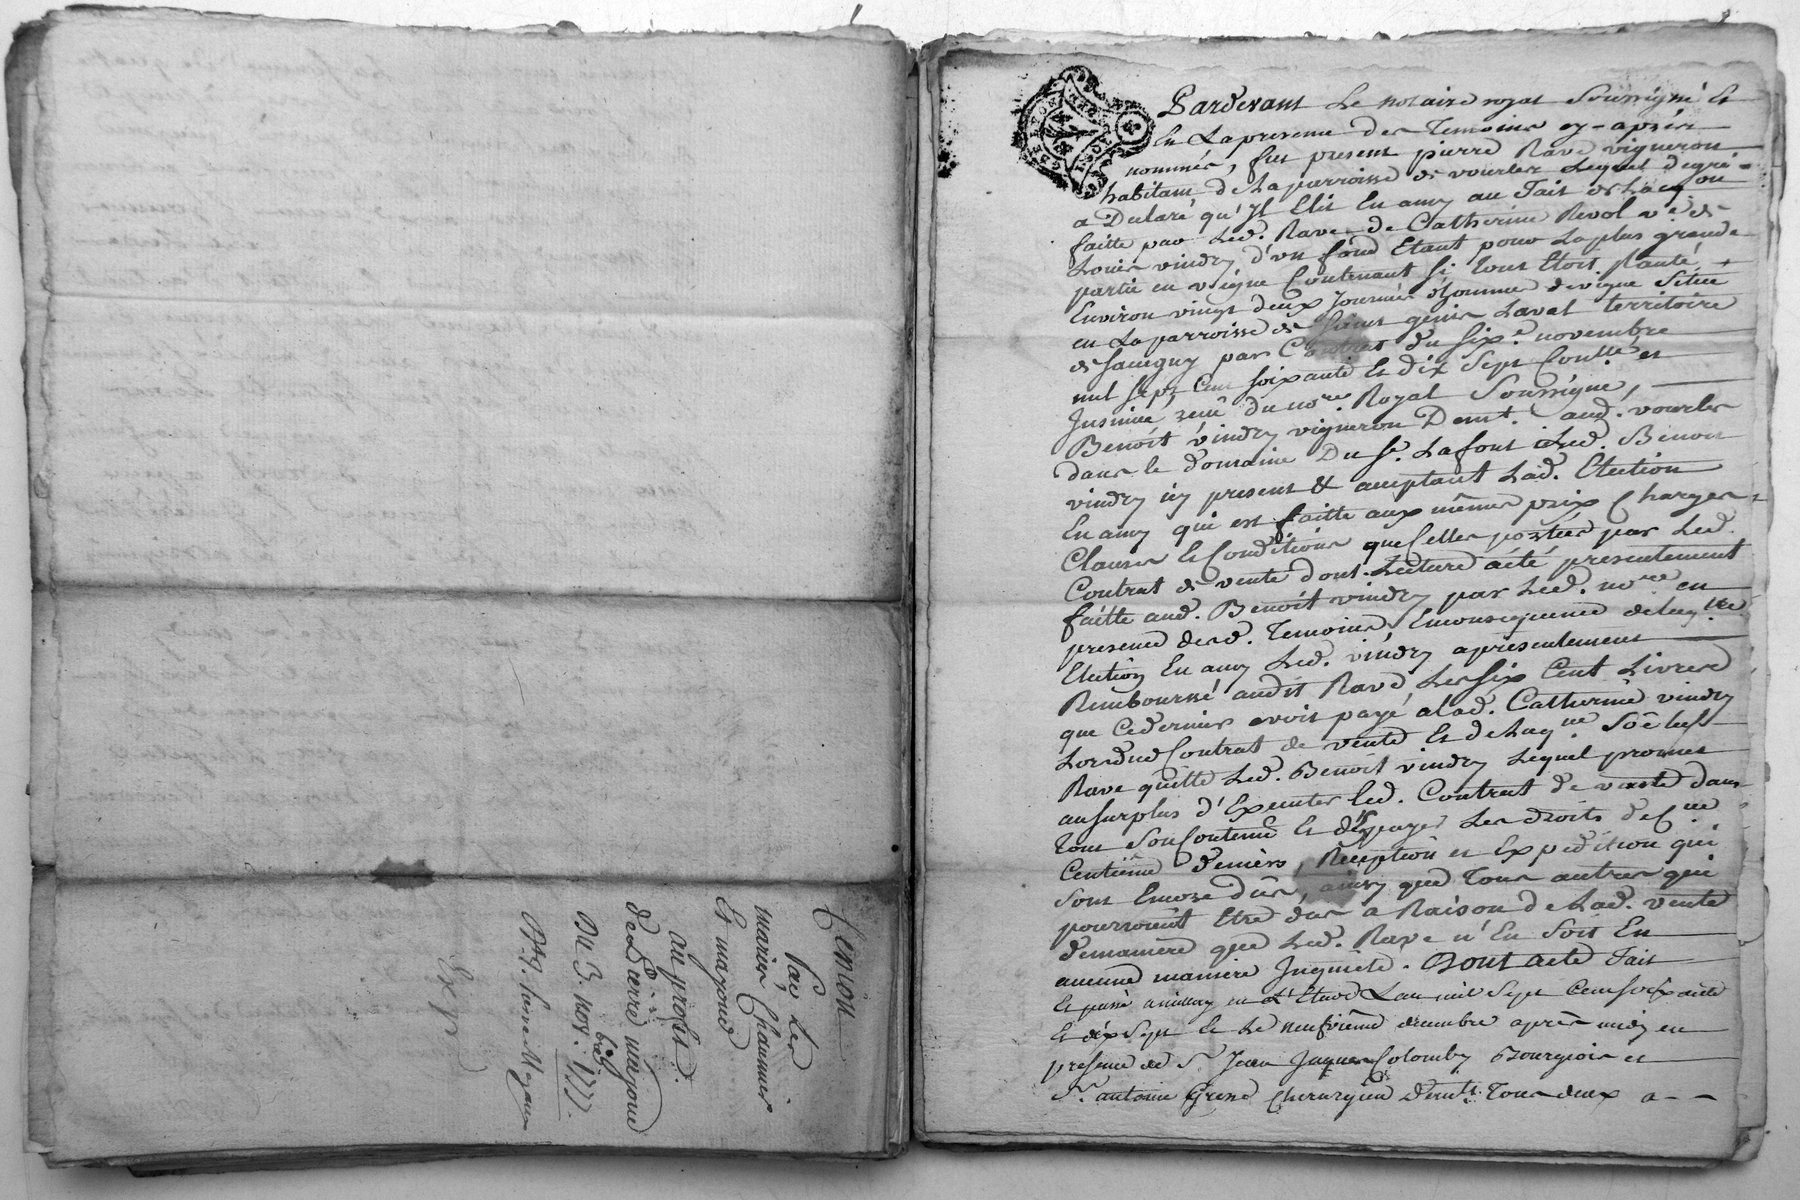 Cension
Par les
mariés Chaumier
Et majoud
au proffit
de Pierre majoud
Du 3. nov.bre 1777.
Exp.
GENE LYON
Pardevant Le notaire royal Soussigné Et
En La presence des Temoins cy-après
nommés, fut present pierre Rave vigneron
habitant de La parroisse de vourles Lequel degré
a Declaré qu'Il Elit En amy au Fait de L'acq.on
faitte par Led. Rave de Catherine Revol v.e de
Louis vindry d'un fond Etant pour La plus grande
partie en vigne Contenant si tout Etoit Planté
Environ vingt deux Journées d'homme de vigne Située
en La parroisse de Saint genis Laval territoire
de Sauvigny par Contrat du six.e novembre
mil sept Cent soixante Et dix sept Conllé et
Insinué, reçu du no.re Royal Soussigné,
Benoit vindry vigneron Dem.t aud. vourles
dans le domaine Du S.r Lafont Led. Benoit
vindry icy present & acceptant Lad. Election
En amy qui est faitte aux mêmes prix Charges
Clauses Et Conditions que Celles portées par Led.
Contrat de vente dont Lecture a été presentement
faitte aud. Benoit vindry par Led. no.re en
presence desd. Temoins, En consequence de lad.
Election En amy Led. vindry a présentement
Remboursé audit Rave Les six Cent Livres
que Ce dernier avoit payé a lad. Catherine vindry
Lors dud Contrat de vente Et de Laq.lle soe led
Rave quitte Led. Benoit vindry Lequel promet
au surplus d'Executer led. Contrat de vente dans
tout son Contenu Et d'y payer Les droits de C.lle
Centième deniers, Reception et Expedition qui
sont Encore dûs, ainsy que Tous autres qui
pourroient Etre dus a Raison de Lad. vente
de maniere que Led. Rave n'En soit En
aucune maniere Inquiété. Dont acte Fait
Et passé a millery en L'Etude L'an mil sept Cent soixante
Et dix sept Et Le neufvième decembre après midy en
presence de S.r Jean Jaques Colomby Bourgeois et
S.r antoine Grene Chirurgien Dem.ts Tous deux a - -